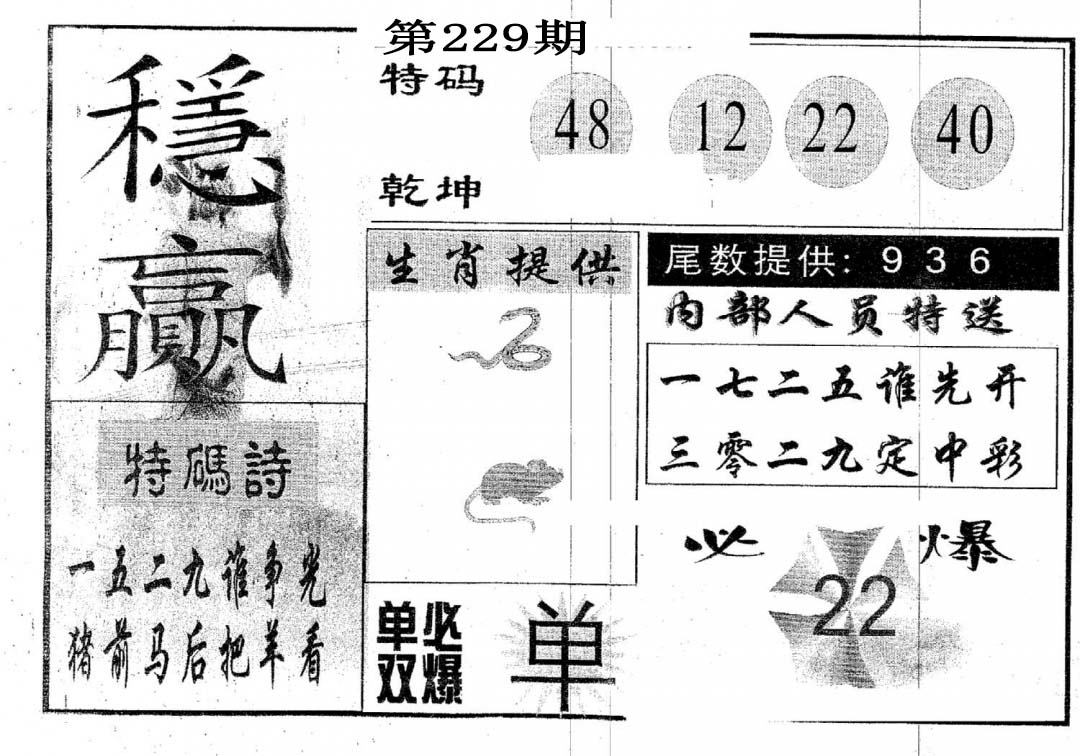 第229期
穩
贏
特码
48 12 22 40
乾坤
生肖提供
尾数提供: 9 3 6
内部人员特送
一七二五谁先开
三零二九定中彩
特碼詩
一五二九谁争光
猪前马后把羊看
单双
必爆
单
必 22 爆